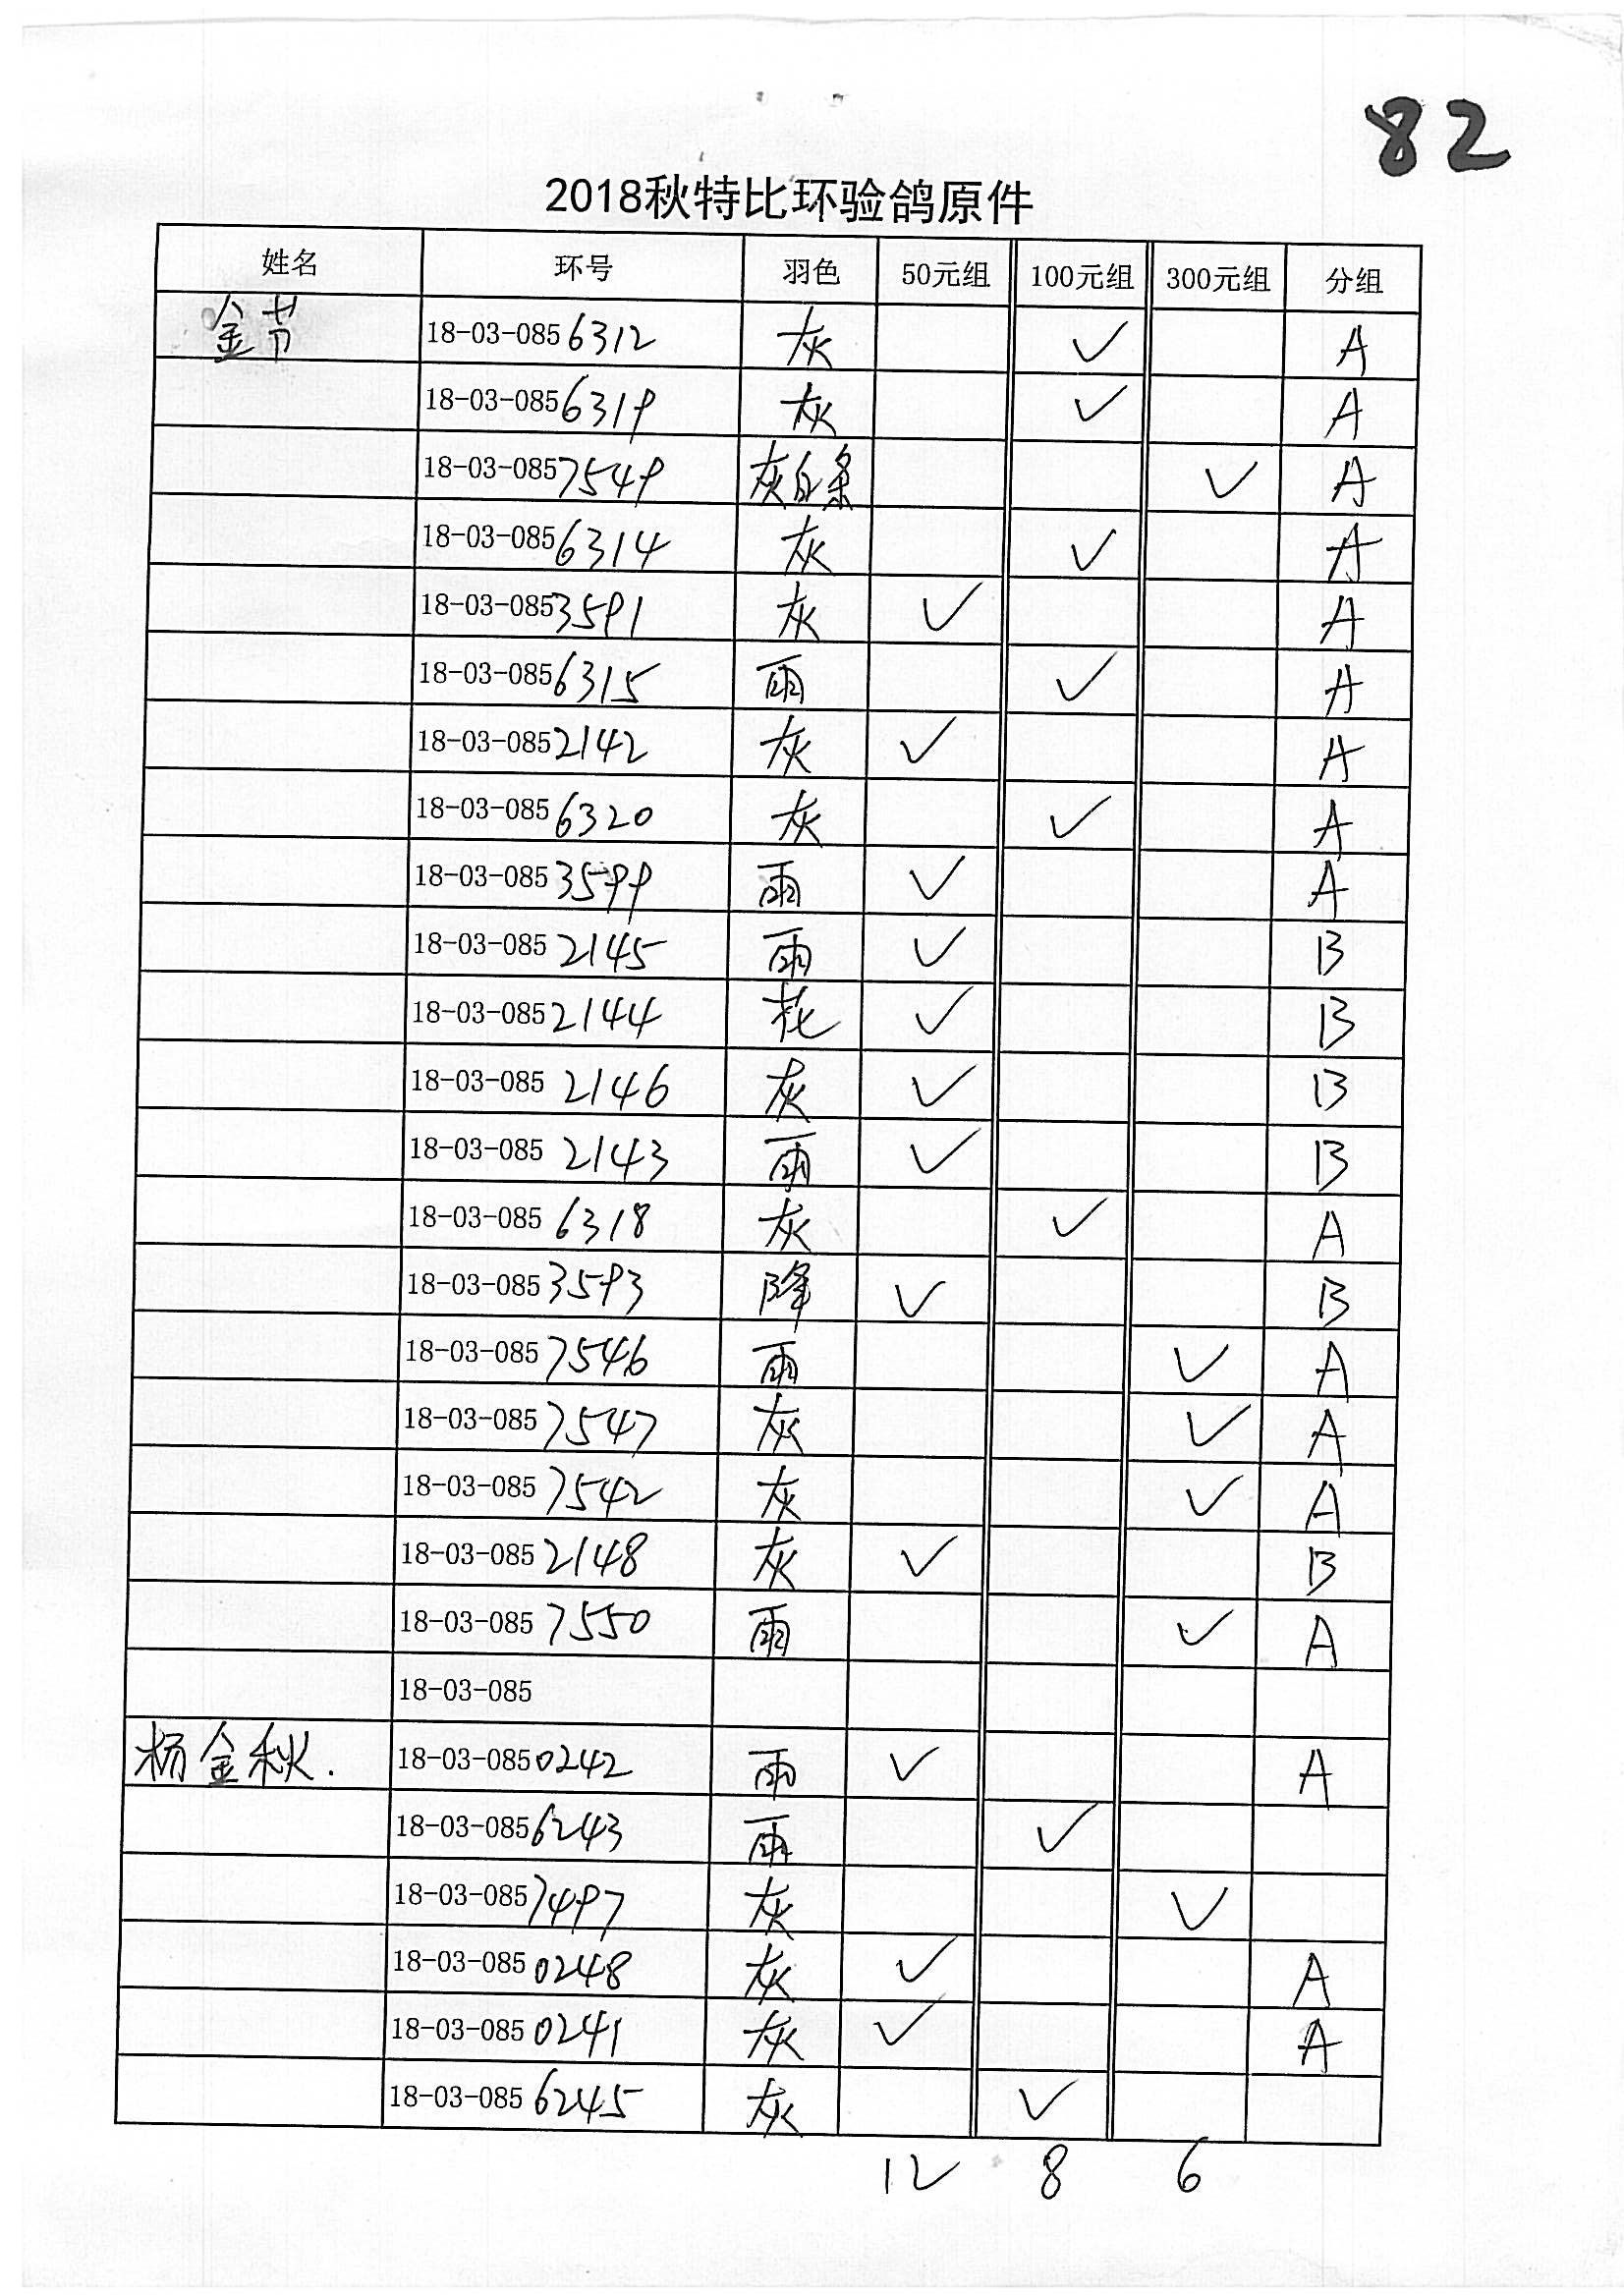 82
2018秋特比环验鸽原件
姓名 环号 羽色 50元组 100元组 300元组 分组
金节 18-03-085 6312 灰 ✓ A
18-03-085 6319 灰 ✓ A
18-03-085 7549 灰白条 ✓ A
18-03-085 6314 灰 ✓ A
18-03-085 3591 灰 ✓ A
18-03-085 6315 雨 ✓ A
18-03-085 2142 灰 ✓ A
18-03-085 6320 灰 ✓ A
18-03-085 3599 雨 ✓ A
18-03-085 2145 雨 ✓ B
18-03-085 2144 花 ✓ B
18-03-085 2146 灰 ✓ B
18-03-085 2143 雨 ✓ B
18-03-085 6318 灰 ✓ A
18-03-085 3593 降 ✓ B
18-03-085 7546 雨 ✓ A
18-03-085 7547 灰 ✓ A
18-03-085 7542 灰 ✓ A
18-03-085 2148 灰 ✓ B
18-03-085 7550 雨 ✓ A
18-03-085
杨金秋. 18-03-085 0242 雨 ✓ A
18-03-085 6243 雨 ✓
18-03-085 7497 灰 ✓
18-03-085 0248 灰 ✓ A
18-03-085 0241 灰 ✓ A
18-03-085 6245 灰 ✓
12 8 6